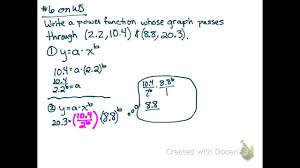 #6 on WS
Write a power function whose graph passes
through (2.2, 10.4) & (8.8, 20.3).
① y = a·x^b
10.4 = a·(2.2)^b
10.4/2.2^b = a
② y = a·x^b
20.3 = (10.4/2^b)(8.8)^b
10.4/2^b · 8.8^b/1
8.8
Created with Doceri